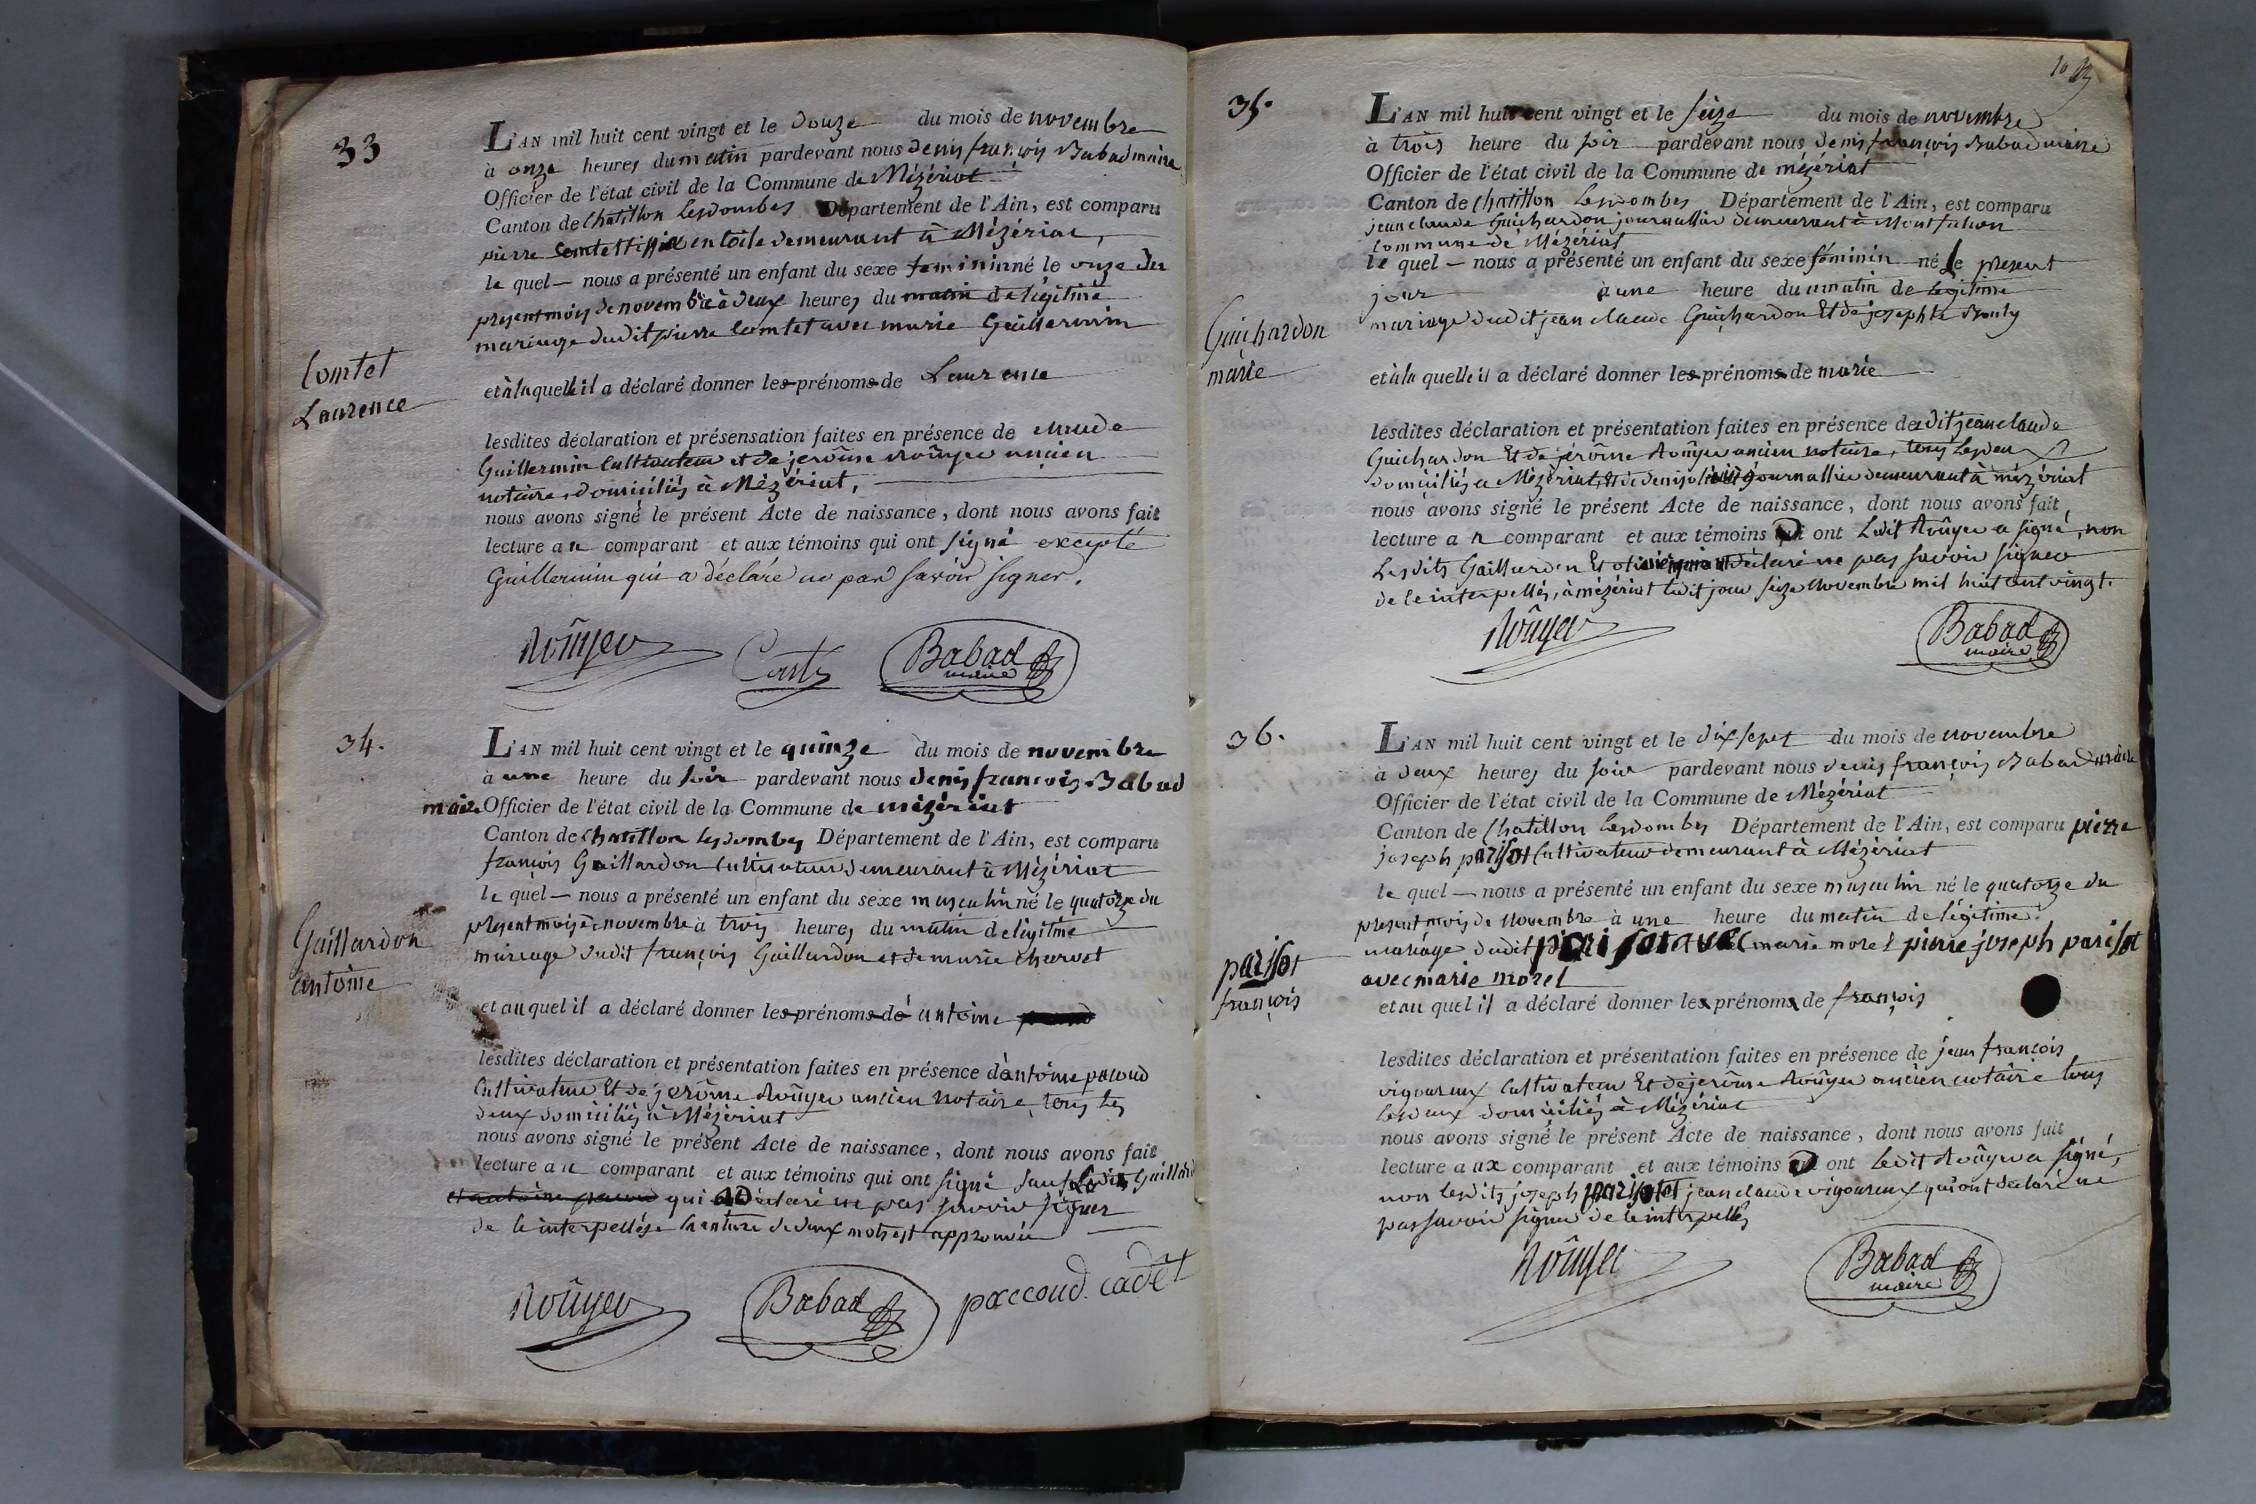 33
L'AN mil huit cent vingt et le douze du mois de novembre
à onze heures du matin pardevant nous denis françois Babad maire
Officier de l'état civil de la Commune de Mézériat
Canton de Chatillon Lesdombes Département de l'Ain, est comparu
pierre Comtet en toile demeurant à Mézériat,
le quel nous a présenté un enfant du sexe feminin né le onze du
present mois de novembre à deux heures du matin de légitime
mariage dudit pierre Comtet avec marie Guillermin
Comtet
Laurence
et à laquelle il a déclaré donner les prénoms de Laurence
lesdites déclaration et présensation faites en présence de claude
Guillermin Cultivateur et de jerôme Roûyer ancien
notaire, domiciliés à Mézériat,
nous avons signé le présent Acte de naissance, dont nous avons fait
lecture au comparant et aux témoins qui ont signé excepté
Guillermin qui a déclaré ne pas savoir signer.
Roûyer
Babad
maire
34.
L'AN mil huit cent vingt et le quinze du mois de novembre
à une heure du soir pardevant nous denis françois Babad
maire Officier de l'état civil de la Commune de mézériat
Canton de Chatillon lesdombes Département de l'Ain, est comparu
françois Gaillardon Cultivateur demeurant à Mézériat
le quel nous a présenté un enfant du sexe masculin né le quatorze du
présent mois de novembre à trois heures du matin de légitime
mariage dudit françois Gaillardon et de marie charvet
Gaillardon
antoine
et au quel il a déclaré donner les prénoms de antoine
lesdites déclaration et présentation faites en présence d'antoine pacoud
Cultivateur Et de jerôme Roûyer ancien notaire, tous les
deux domiciliés à Mézériat
nous avons signé le présent Acte de naissance, dont nous avons fait
lecture au comparant et aux témoins qui ont signé sauf Ledit Gaillard
qui a déclaré ne pas savoir signer
de le interpellés de deux mots est approuvée
Roûyer
Babad
paccoud. cadet
35.
L'AN mil huit cent vingt et le seize du mois de novembre
à trois heure du soir pardevant nous denis françois Babad maire
Officier de l'état civil de la Commune de mézériat
Canton de Chatillon Lesdombes Département de l'Ain, est comparu
jean claude Guichardon journallier demeurant à Montfalcon
Commune de Mézériat
le quel nous a présenté un enfant du sexe féminin né le présent
jour à une heure du matin de legitime
mariage dudit jean claude Guichardon Et de josephte
Guichardon
marie
et à la quelle il a déclaré donner les prénoms de marie
lesdites déclaration et présentation faites en présence dudit jean claude
Guichardon Et de jérôme Roûyer ancien notaire, tous Les deux
domiciliés à Mézériat, Et de denis journallier demeurant à mézériat
nous avons signé le présent Acte de naissance, dont nous avons fait
lecture au comparant et aux témoins qui ont Ledit Roûyer a signé, non
Lesdits Gaillardon Et déclaré ne pas savoir signer
de le interpellés, à mézériat ledit jour seize novembre mil huit cent vingt.
Roûyer
Babad
maire
36.
L'AN mil huit cent vingt et le dix sept du mois de novembre
à deux heures du soir pardevant nous denis françois Babad maire
Officier de l'état civil de la Commune de Mézériat
Canton de Chatillon Lesdombes Département de l'Ain, est comparu pierre
joseph parisot Cultivateur demeurant à Mézériat
le quel nous a présenté un enfant du sexe masculin né le quatorze du
present mois de novembre à une heure du matin de légitime
mariage dudit parisot avec marie morel pierre joseph parisot
avec marie morel
parissot
françois
et au quel il a déclaré donner les prénoms de françois
lesdites déclaration et présentation faites en présence de jean françois
vigoureux Cultivateur Et de jerôme Roûyer ancien notaire tous
Les deux domiciliés à Mézériat
nous avons signé le présent Acte de naissance, dont nous avons fait
lecture aux comparant et aux témoins qui ont Ledit Roûyer a signé,
non lesdits joseph parisot et jean claude vigoureux qui ont déclaré ne
pas savoir signer de le interpellés
Roûyer
Babad
maire